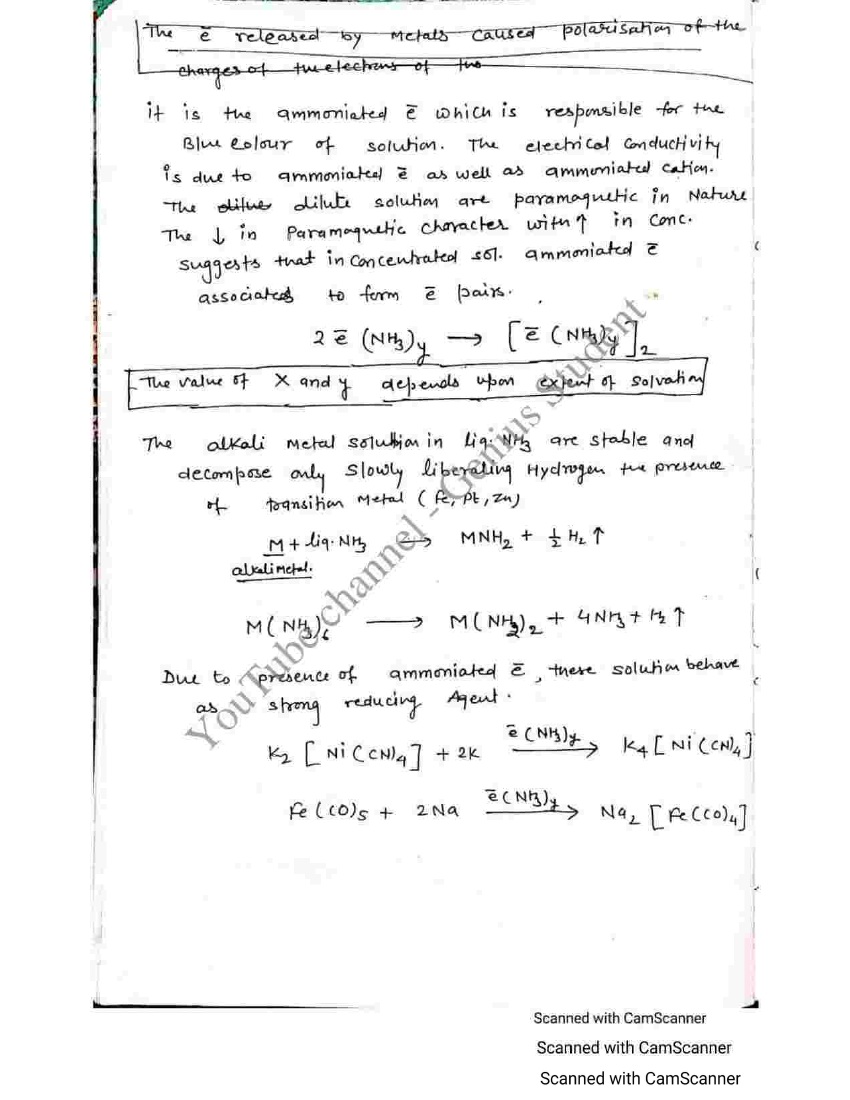 The ē released by Metals caused polarisation of the
charges of the electrons of the
it is the ammoniated ē which is responsible for the
Blue Colour of solution. The electrical conductivity
is due to ammoniated ē as well as ammoniated cation.
The dilute solution are paramagnetic in Nature
The ↓ in Paramagnetic Character with ↑ in conc.
suggests that in concentrated sol. ammoniated ē
associated to form ē pairs.
2 ē (NH₃)y ⟶ [ē (NH₃)y]₂
The value of X and y depends upon extent of solvation
The alkali Metal solution in liq. NH₃ are stable and
decompose only slowly liberating Hydrogen the presence
of transition Metal (Fe, Pt, Zn)
M + liq. NH₃ ⟶ MNH₂ + ½ H₂ ↑
alkali metal.
M(NH₃)₆ ⟶ M(NH₂)₂ + 4NH₃ + H₂ ↑
Due to presence of ammoniated ē, these solution behave
as strong reducing Agent.
ē (NH₃)y
K₂ [Ni(CN)₄] + 2K ⟶ K₄ [Ni(CN)₄]
ē (NH₃)y
Fe(CO)₅ + 2Na ⟶ Na₂ [Fe(CO)₄]
YouTube channel - Genius Student
Scanned with CamScanner
Scanned with CamScanner
Scanned with CamScanner